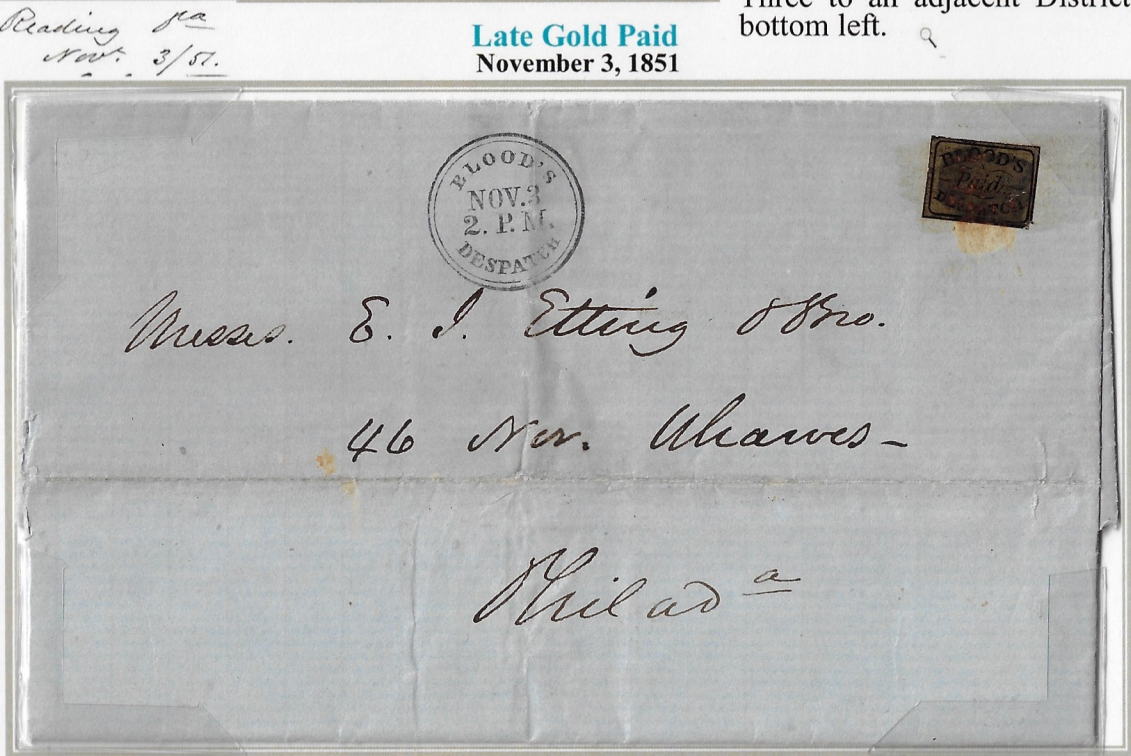 Reading Pa
Nov. 3/51.
Late Gold Paid
November 3, 1851
Three to an adjacent District
bottom left.
BLOOD'S
NOV. 3
2. P. M.
DESPATCH
BLOOD'S
Paid
DESPATCH
Messrs. E. I. Etting & Bro.
46 Nor. Wharves -
Philad a